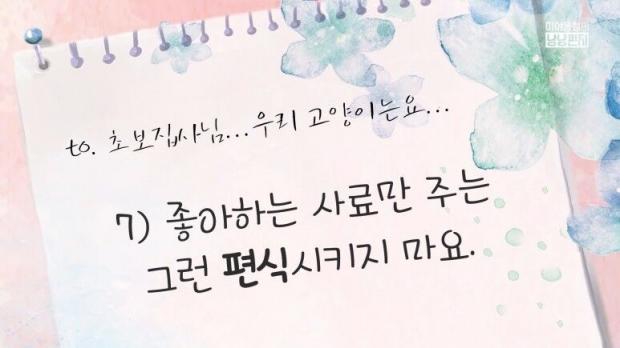 to. 초보집사님...우리 고양이는요...
7) 좋아하는 사료만 주는
그런 편식시키지 마요.